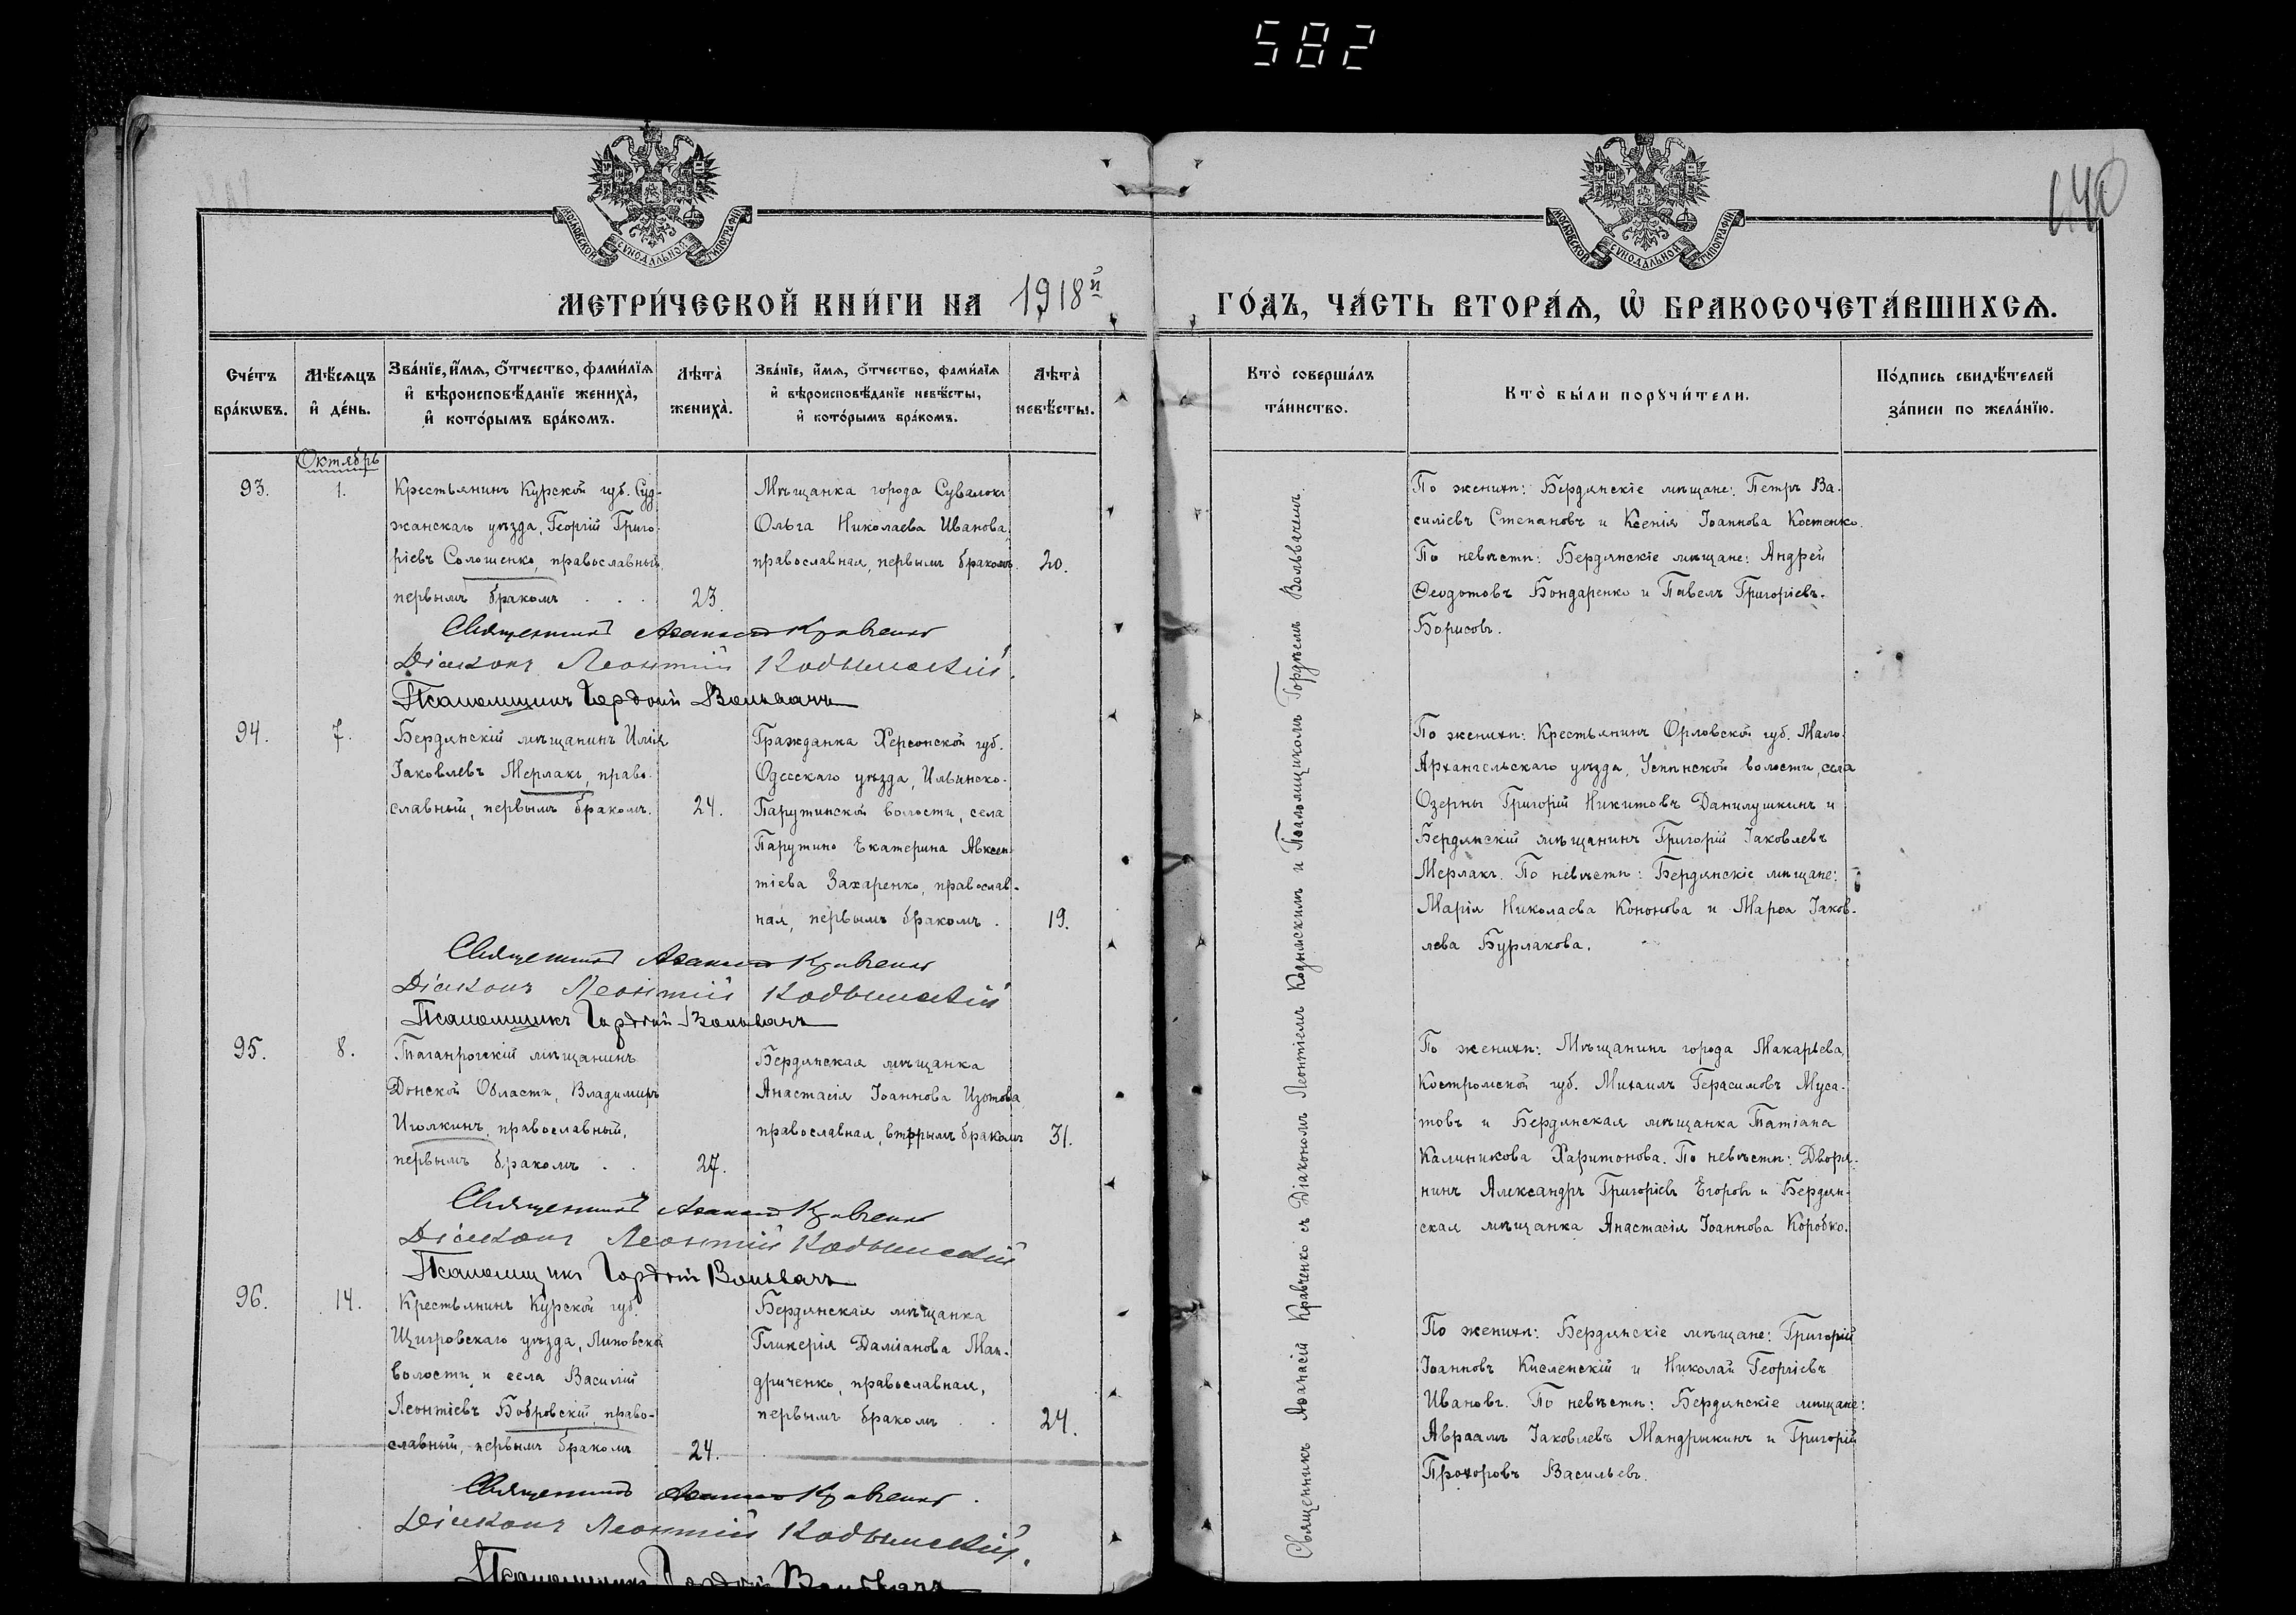 582
140
МОСКОВСКОЙ СѴНОДАЛЬНОЙ ТИПОГРАФІИ
МОСКОВСКОЙ СѴНОДАЛЬНОЙ ТИПОГРАФІИ
МЕТРИ́ЧЕСКОЙ КНИ́ГИ НА 1918й
ГО́ДЪ, ЧА́СТЬ ВТОРА́Ѧ, Ѡ҆ БРАКОСОЧЕТА́ВШИХСѦ.
Сче́тъ
бра́кѡвъ.
Мѣ́сѧцъ
и҆ де́нь.
Зва́нїе, и҆́мѧ, ѻ҆́тчество, фами́лїѧ
и҆ вѣроисповѣ́данїе жениха̀,
и҆ кото́рымъ бра́комъ.
Лѣта̀
жениха̀.
Зва́нїе, и҆́мѧ, ѻ҆́тчество, фами́лїѧ
и҆ вѣроисповѣ́данїе невѣ́сты,
и҆ кото́рымъ бра́комъ.
Лѣта̀
невѣ́сты.
Кто̀ соверша́лъ
та́инство.
Кто̀ бы́ли порꙋчи́тели.
По́дпись свидѣ́телей
за́писи по жела́нїю.
Октябрь
93.
1.
Крестьянинъ Курской губ. Суд-
жанскаго уѣзда, Георгій Григо-
ріевъ Солошенко, православный,
первымъ бракомъ . . .
23.
Мѣщанка города Сувалокъ
Ольга Николаева Иванова,
православная, первымъ бракомъ.
20.
По женихѣ: Бердянскіе мѣщане: Петръ Ва-
силіевъ Степановъ и Ксенія Іоаннова Костенко.
По невѣстѣ: Бердянскіе мѣщане: Андрей
Ѳеодотовъ Бондаренко и Павелъ Григоріевъ-
Борисовъ.
Священникъ Аѳанасій Кравченко
Діаконъ Леонтій Кодымскій.
Псаломщикъ Гордѣй Вольвачъ
94.
7.
Бердянскій мѣщанинъ Илія
Іаковлевъ Мерлакъ, право-
славный, первымъ бракомъ.
24.
Гражданка Херсонской губ.
Одесскаго уѣзда, Ильинско-
Парутинской волости, села
Парутино Екатерина Авксен-
тіева Захаренко, православ-
ная, первымъ бракомъ .
19.
По женихѣ: Крестьянинъ Орловской губ. Мало-
Архангельскаго уѣзда, Успенской волости, села
Озерны Григорій Никитовъ Данилушкинъ и
Бердянскій мѣщанинъ Григорій Іаковлевъ
Мерлакъ. По невѣстѣ: Бердянскіе мѣщане:
Марія Николаева Кононова и Марѳа Іаков-
лева Бурлакова.
Священникъ Аѳанасій Кравченко
Діаконъ Леонтій Кодымскій
Псаломщикъ Гордѣй Вольвачъ
95.
8.
Таганрогскій мѣщанинъ
Донской Области, Владимиръ
Иголкинъ, православный,
первымъ бракомъ . .
27.
Бердянская мѣщанка
Анастасія Іоаннова Изотова,
православная, вторымъ бракомъ
31.
По женихѣ: Мѣщанинъ города Макарьева,
Костромской губ. Михаилъ Герасимовъ Муса-
товъ и Бердянская мѣщанка Татіана
Калиникова Харитонова. По невѣстѣ: Дворя-
нинъ Александръ Григоріевъ Егоровъ и Бердян-
ская мѣщанка Анастасія Іоаннова Коробко.
Священникъ Аѳанасій Кравченко
Діаконъ Леонтій Кодымскій
Псаломщикъ Гордѣй Вольвачъ
96.
14.
Крестьянинъ Курской губ.
Щигровскаго уѣзда, Липовской
волости и села Василій
Леонтіевъ Бобровскій, право-
славный, первымъ бракомъ
24.
Бердянская мѣщанка
Гликерія Даміанова Ман-
дриченко, православная,
первымъ бракомъ . .
24.
По женихѣ: Бердянскіе мѣщане: Григорій
Іоанновъ Кисленскій и Николай Георгіевъ
Ивановъ. По невѣстѣ: Бердянскіе мѣщане:
Авраамъ Іаковлевъ Мандрыкинъ и Григорій
Прохоровъ Васильевъ.
Священникъ Аѳанасій Кравченко.
Діаконъ Леонтій Кодымскій.
Псаломщикъ Гордѣй Вольвачъ
Священникъ Аѳанасій Кравченко съ Діакономъ Леонтіемъ Кодымскимъ и Псаломщикомъ Гордѣемъ Вольвачемъ.